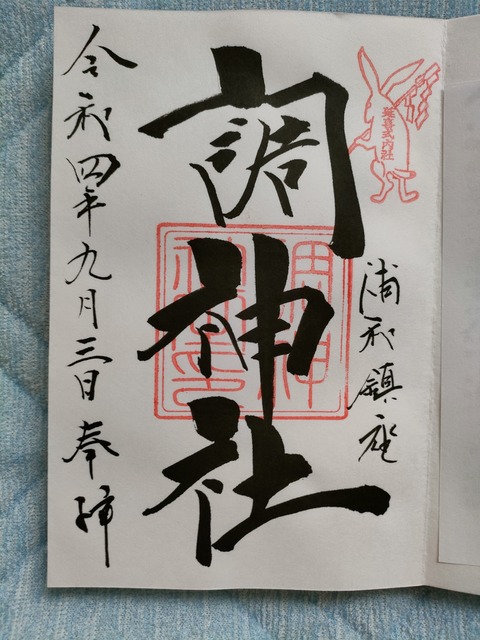 延喜式内社
浦和鎮座
調神社
令和四年九月三日 奉拝